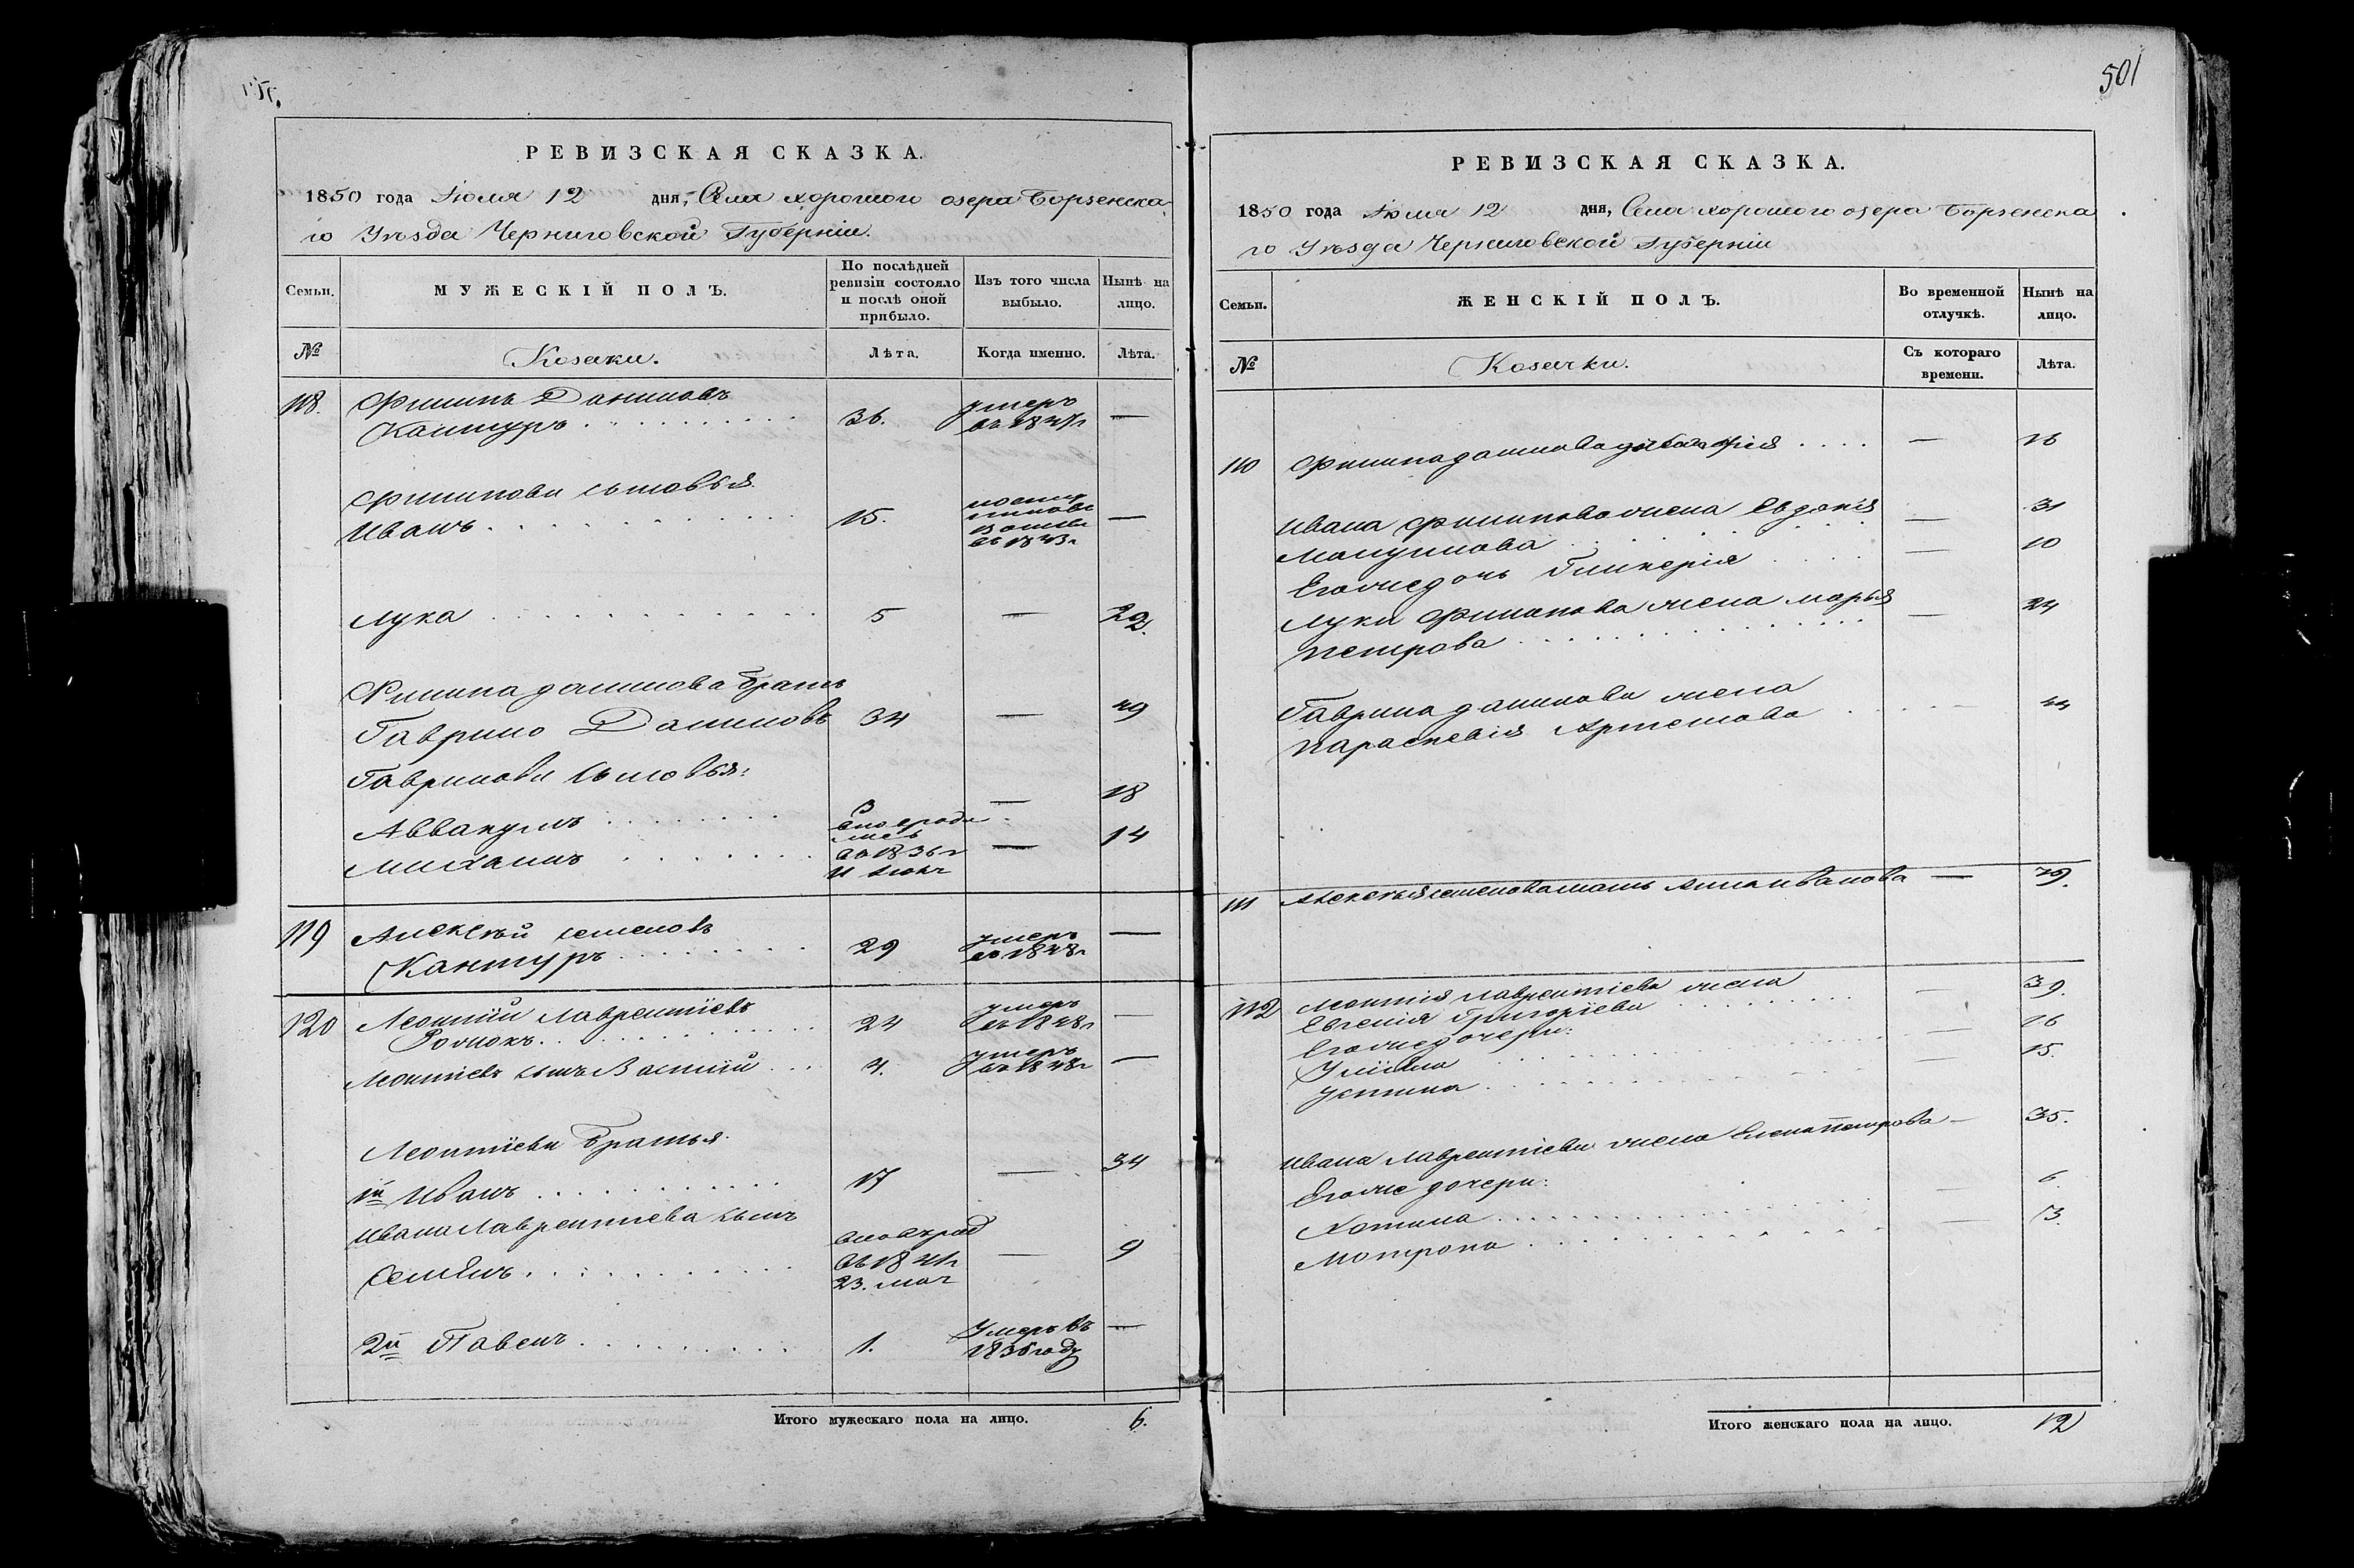 РЕВИЗСКАЯ СКАЗКА.
1850 года Июля 12 дня, Села хорошого озера Борзенска
го Уѣзда Черниговской Губерніи.
Семьи.
МУЖЕСКІЙ ПОЛЪ.
По послѣдней ревизіи состояло и послѣ оной прибыло.
Изъ того числа выбыло.
Нынѣ на лицо.
№
Козаки.
Лѣта.
Когда именно.
Лѣта.
118. Филипъ Даниловъ
Кантуръ 36. умеръ —
Филиповы сыновья
Иванъ 15. —
Лука 5 — 20
Филипа данилова братъ
Гаврило Даниловъ 34 — 49
Гавриловы сыновья:
Аввакумъ 3 — 18
Михаилъ — 14
въ 1836г
119 Алексѣй семеновъ
Кантуръ 29 умеръ —
въ 1848г
120 Леонтій Лаврентіевъ 24 умеръ —
въ 1848г
Леонтіевъ сынъ Василій 4. умеръ —
въ 1848г
Леонтіевы братья
1й Иванъ 17 — 34
Ивана Лаврентіева сынъ
Семенъ — 9
23. мая
2й Павелъ 1. Умеръ въ —
году
Итого мужескаго пола на лицо. 6.
501
РЕВИЗСКАЯ СКАЗКА.
1850 года Июля 12 дня, Села хорошого озера Борзенска
го Уѣзда Черниговской Губерніи
Семьи.
ЖЕНСКІЙ ПОЛЪ.
Во временной отлучкѣ.
Нынѣ на лицо.
№
Козачки.
Съ котораго времени.
Лѣта.
Филипа данилова — 16
Ивана филипова жена Евдокія — 31
Его же дочь Гликерія — 10
Луки Филипова жена марья — 24
петрова
Гаврила данилова жена
параскевія Артемова — 44
111 Алексѣя семенова мать Анна иванова — 79.
112 Леонтія лаврентіева жена — 39.
Евгенія Григоріева
Его же дочери: — 16
Уліяна — 15.
Устина
Ивана Лаврентіева жена Елена петрова — 35.
Его же дочери: 6
—
Мотрона — 3.
Итого женскаго пола на лицо. 12